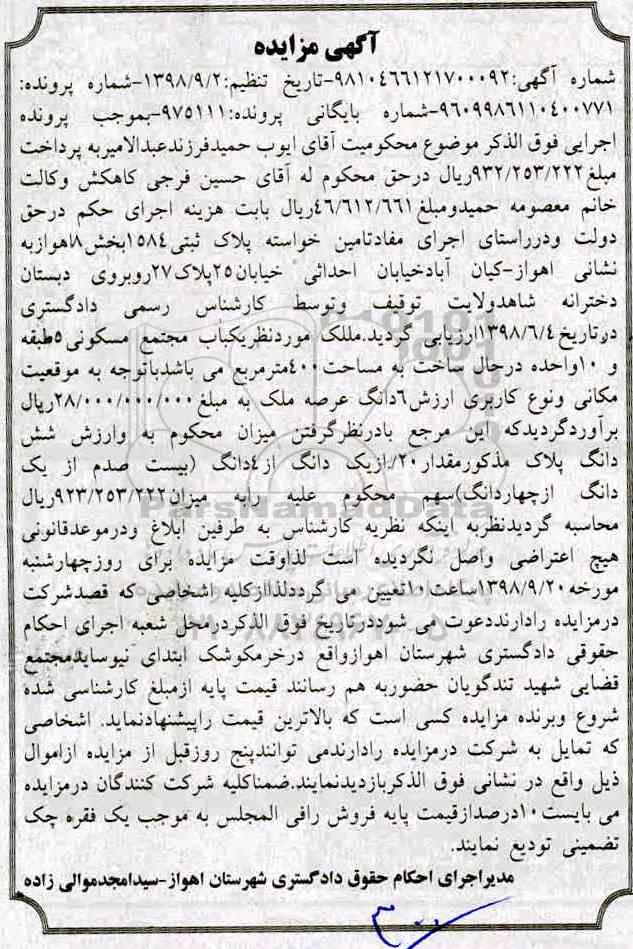 آگهی مزایده
شماره آگهی:۹۸۱۰۴۶۶۱۲۱۷۰۰۰۹۲-تاریخ تنظیم:۱۳۹۸/۹/۲-شماره پرونده:
۹۶۰۹۹۸۶۱۱۰۴۰۰۷۷۱-شماره بایگانی پرونده:۹۷۵۱۱۱-بموجب پرونده
اجرایی فوق الذکر موضوع محکومیت آقای ایوب حمیدفرزندعبدالامیربه پرداخت
مبلغ۹۳۲/۲۵۳/۲۲۲ریال درحق محکوم له آقای حسین فرجی کاهکش وکالت
خانم معصومه حمیدومبلغ۴۶/۶۱۲/۶۶۱ریال بابت هزینه اجرای حکم درحق
دولت ودرراستای اجرای مفادتامین خواسته پلاک ثبتی۱۵۸۴بخش۸اهوازبه
نشانی اهواز-کیان آبادخیابان احداثی خیابان۲۵پلاک۲۷روبروی دبستان
دخترانه شاهدولایت توقیف وتوسط کارشناس رسمی دادگستری
درتاریخ۱۳۹۸/۶/۴ارزیابی گردید.مللک موردنظریکباب مجتمع مسکونی۵طبقه
و ۱۰واحده درحال ساخت به مساحت۴۰۰مترمربع می باشدباتوجه به موقعیت
مکانی ونوع کاربری ارزش۶دانگ عرصه ملک به مبلغ۲۸/۰۰۰/۰۰۰/۰۰۰ریال
برآوردگردیدکه این مرجع بادرنظرگرفتن میزان محکوم به وارزش شش
دانگ پلاک مذکورمقدار۲۰/.ازیک دانگ از۴دانگ (بیست صدم از یک
دانگ ازچهاردانگ)سهم محکوم علیه رابه میزان۹۲۳/۲۵۳/۲۲۲ریال
محاسبه گردیدنظربه اینکه نظریه کارشناس به طرفین ابلاغ ودرموعدقانونی
هیچ اعتراضی واصل نگردیده است لذاوقت مزایده برای روزچهارشنبه
مورخه۱۳۹۸/۹/۲۰ساعت۱۰تعیین می گرددلذاازکلیه اشخاصی که قصدشرکت
درمزایده رادارنددعوت می شوددرتاریخ فوق الذکردرمحل شعبه اجرای احکام
حقوقی دادگستری شهرستان اهوازواقع درخرمکوشک ابتدای نیوسایدمجتمع
قضایی شهید تندگویان حضوربه هم رسانند قیمت پایه ازمبلغ کارشناسی شده
شروع وبرنده مزایده کسی است که بالاترین قیمت راپیشنهادنماید. اشخاصی
که تمایل به شرکت درمزایده رادارندمی توانندپنج روزقبل از مزایده ازاموال
ذیل واقع در نشانی فوق الذکربازدیدنمایند.ضمناکلیه شرکت کنندگان درمزایده
می بایست ۱۰درصدازقیمت پایه فروش رافی المجلس به موجب یک فقره چک
تضمینی تودیع نمایند.
مدیراجرای احکام حقوق دادگستری شهرستان اهواز-سیدامجدموالی زاده
ParsNamadData